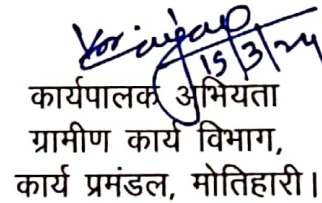 15/3/24
कार्यपालक अभियता
ग्रामीण कार्य विभाग,
कार्य प्रमंडल, मोतिहारी।